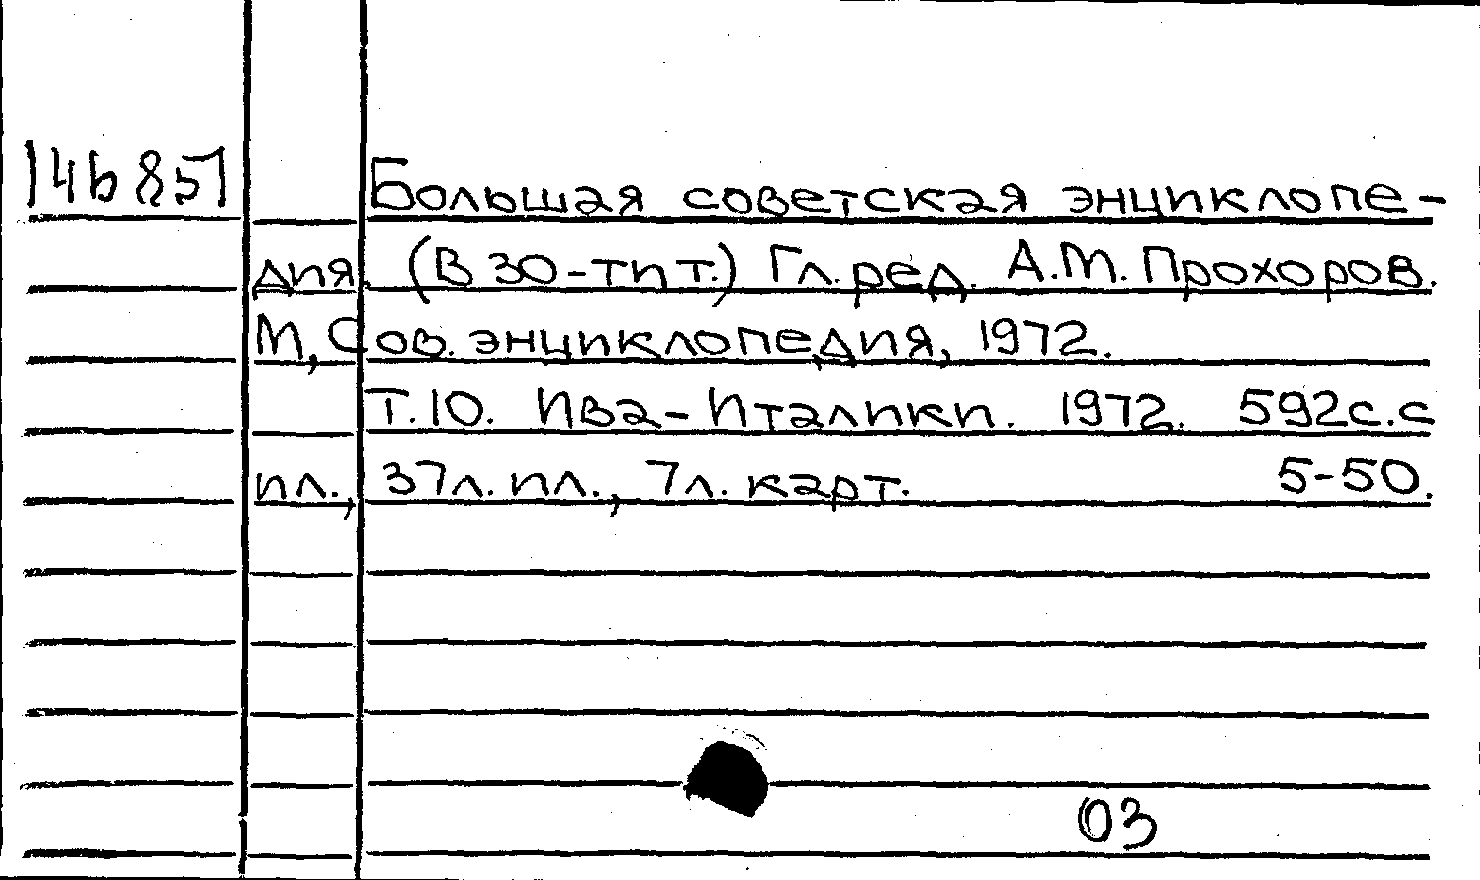 14685 Большая советская энциклопе-
дия (В 30-ти т.) Гл. ред. А.М. Прохоров.
М, Сов. энциклопедия, 1972.
Т.10. Ива-Италики. 1972. 592с.с
ил., 37л. ил., 7л. карт. 5-50.
03